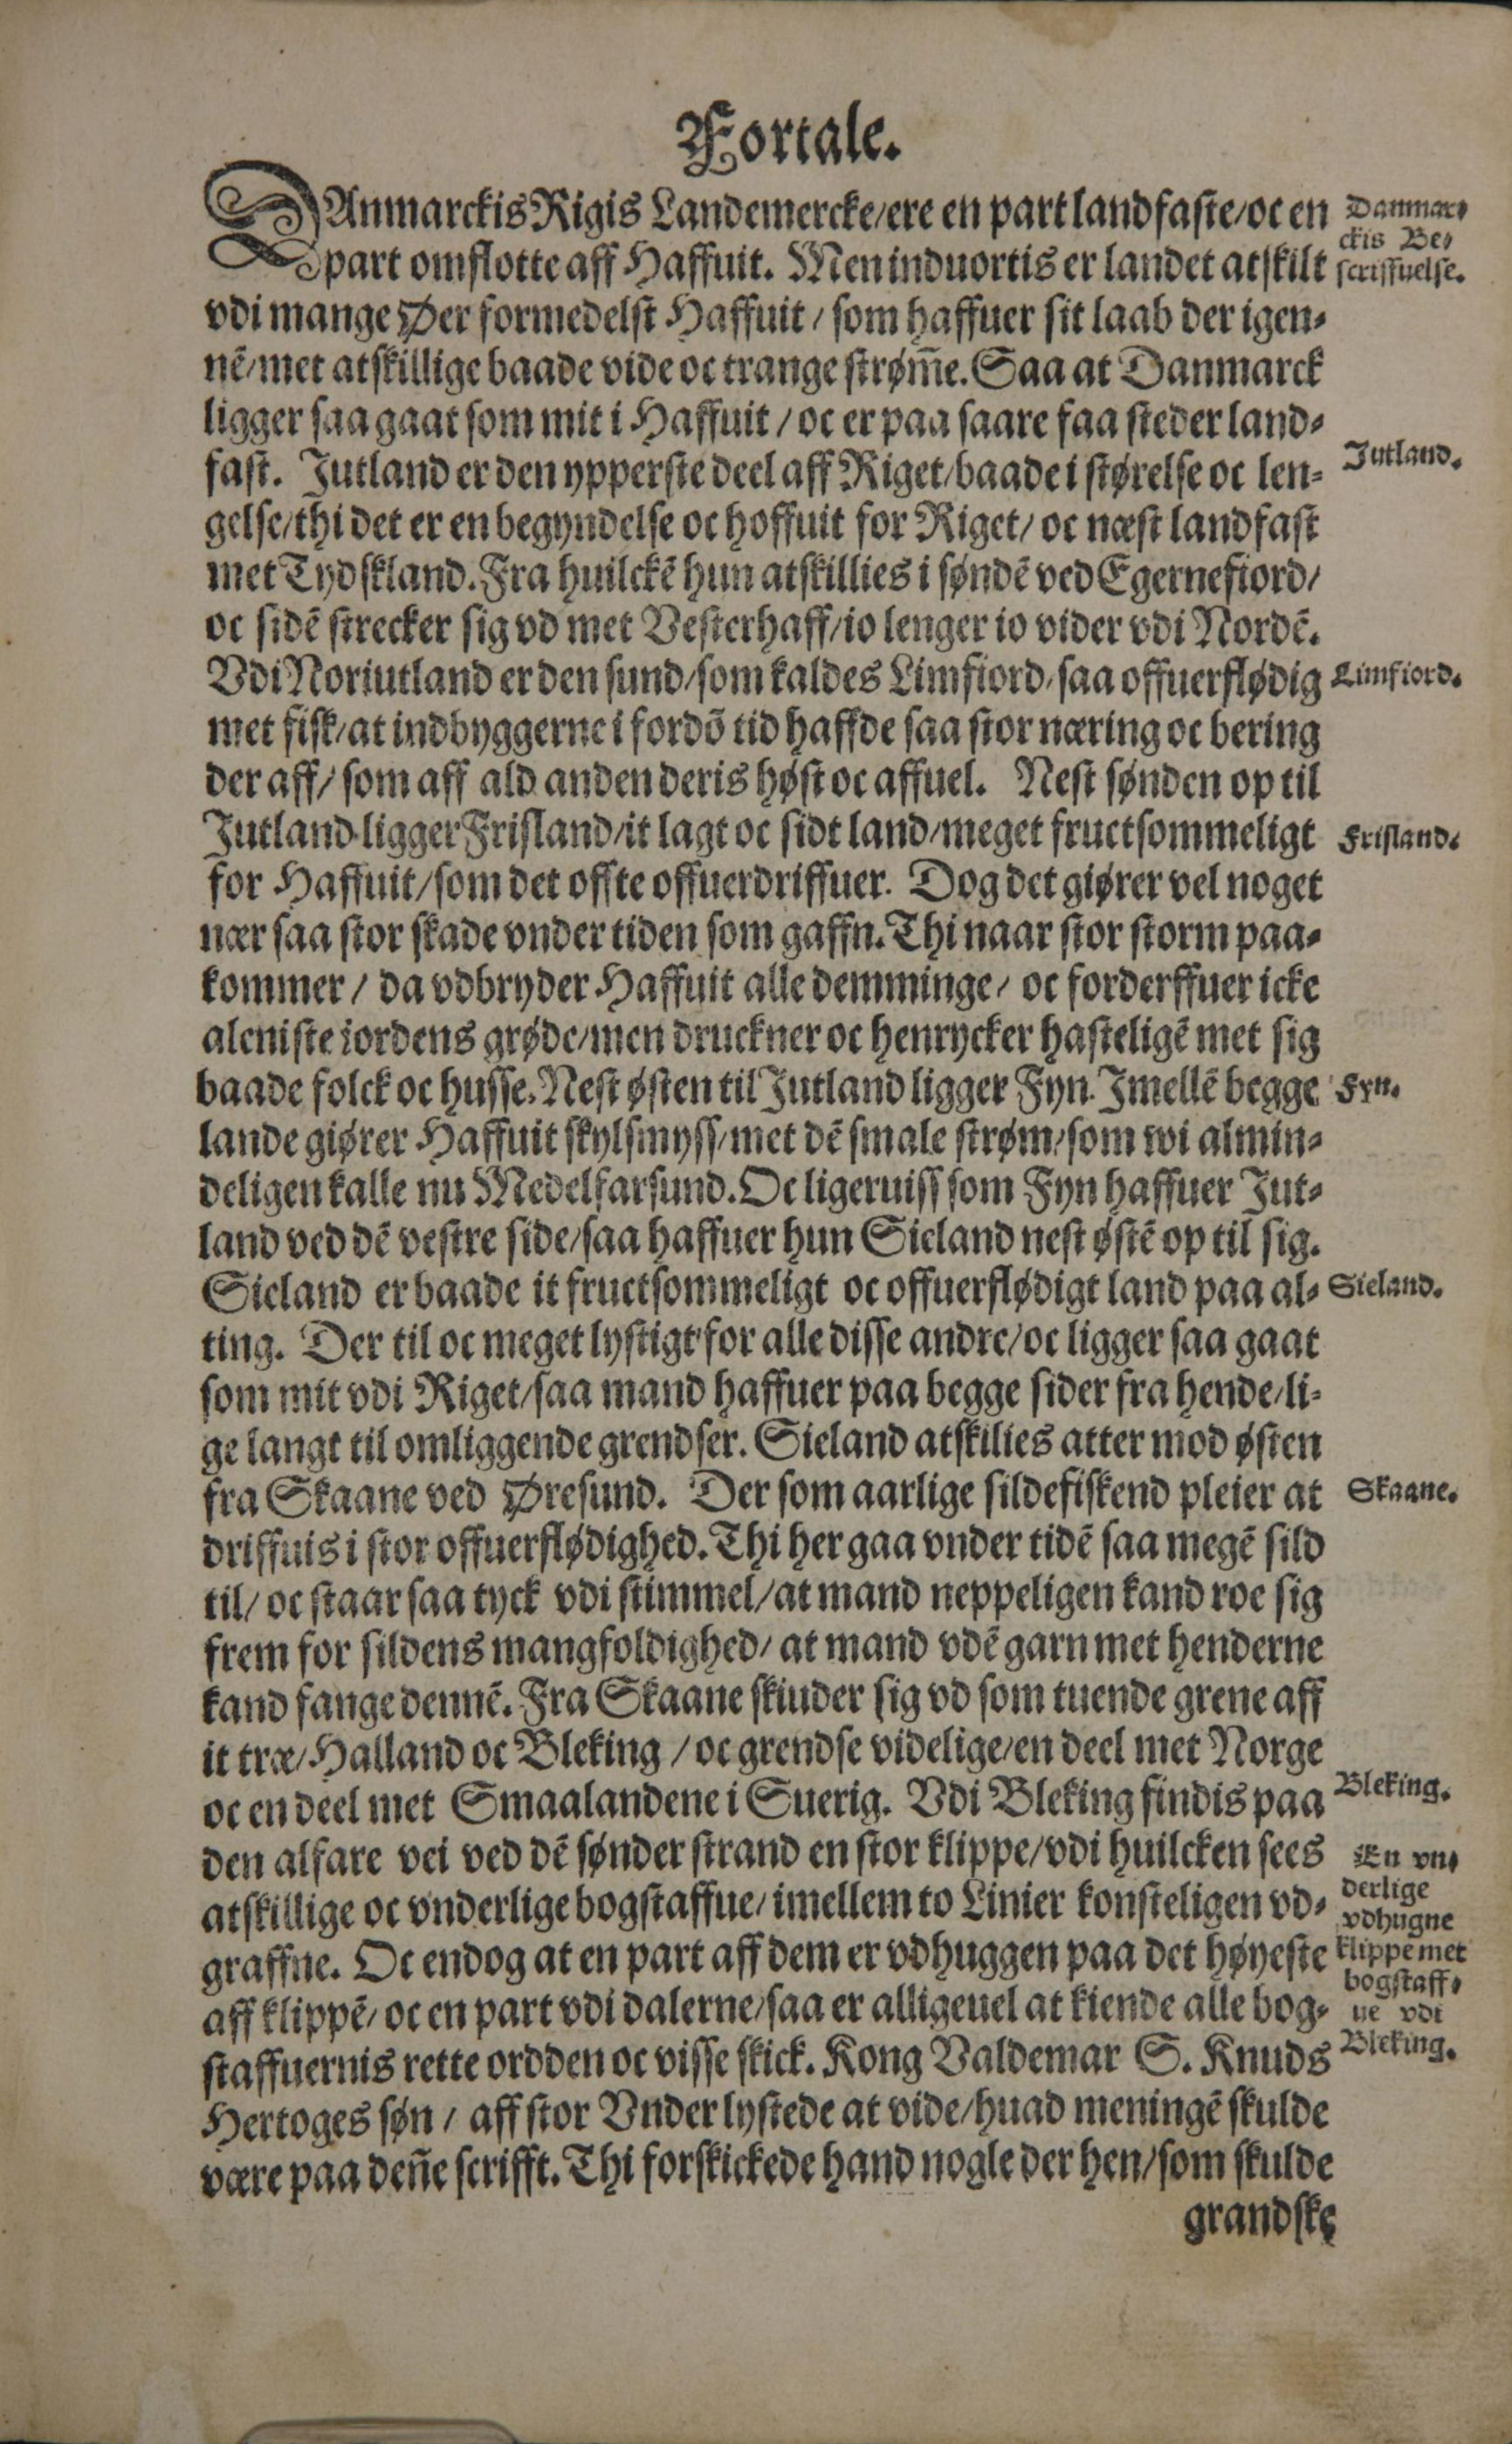 Fortale.
DAnmarckis Rigis Landemercke/ere en part landfaste/oc en
part omflotte aff Haffuit. Men induortis er landet atskilt
vdi mange Øer formedelst Haffuit / som haffuer sit laab der igen-
nē/met atskillige baade vide oc trange strøm̄e. Saa at Danmarck
ligger saa gaat som mit i Haffuit / oc er paa saare faa steder land-
fast. Jutland er den ypperste deel aff Riget/baade i størelse oc len-
gelse/thi det er en begyndelse oc hoffuit for Riget/ oc næst landfast
met Tydskland. Fra huilckē hun atskillies i søndē ved Egernefiord/
oc sidē strecker sig vd met Vesterhaff/io lenger io vider vdi Nordē.
Vdi Noriutland er den sund/som kaldes Limfiord/saa offuerflødig
met fisk/at indbyggerne i fordō tid haffde saa stor næring oc bering
der aff/ som aff ald anden deris høst oc affuel. Nest sønden op til
Jutland ligger Frisland/it lagt oc sidt land/meget fructsommeligt
for Haffuit/som det offte offuerdriffuer. Dog det giører vel noget
nær saa stor skade vnder tiden som gaffn. Thi naar stor storm paa-
kommer / da vdbryder Haffuit alle demminge/ oc forderffuer icke
aleniste iordens grøde/men druckner oc henrycker hasteligē met sig
baade folck oc husse. Nest østen til Jutland ligger Fyn. Imellē begge
lande giører Haffuit skylsmyss/met dē smale strøm/som wi almin-
deligen kalle nu Medelfarsund. Oc ligeruiss som Fyn haffuer Jut-
land ved dē vestre side/saa haffuer hun Sieland nest østē op til sig.
Sieland er baade it fructsommeligt oc offuerflødigt land paa al-
ting. Der til oc meget lystigt for alle disse andre/oc ligger saa gaat
som mit vdi Riget/saa mand haffuer paa begge sider fra hende/li-
ge langt til omliggende grendser. Sieland atskilies atter mod østen
fra Skaane ved Øresund. Der som aarlige sildefiskend pleier at
driffuis i stor offuerflødighed. Thi her gaa vnder tidē saa megē sild
til/ oc staar saa tyck vdi stimmel/at mand neppeligen kand roe sig
frem for sildens mangfoldighed/ at mand vdē garn met henderne
kand fange dennē. Fra Skaane skiuder sig vd som tuende grene aff
it træ/Halland oc Bleking / oc grendse videlige/en deel met Norge
oc en deel met Smaalandene i Suerig. Vdi Bleking findis paa
den alfare vei ved dē sønder strand en stor klippe/vdi huilcken sees
atskillige oc vnderlige bogstaffue/ imellem to Linier konsteligen vd-
graffne. Oc endog at en part aff dem er vdhuggen paa det høyeste
aff klippē/ oc en part vdi dalerne/saa er alligeuel at kiende alle bog-
staffuernis rette ordden oc visse skick. Kong Valdemar S. Knuds
Hertoges søn / aff stor Vnder lystede at vide/huad meningē skulde
være paa den̄e scrifft. Thi forskickede hand nogle der hen/som skulde
grandske
Danmar-
ckis Be-
scriffuelse.
Jutland.
Limfiord.
Frisland.
Fyn.
Sieland.
Skaane.
Bleking.
En vn-
derlige
vdhugne
klippe met
bogstaff-
ue vdi
Bleking.